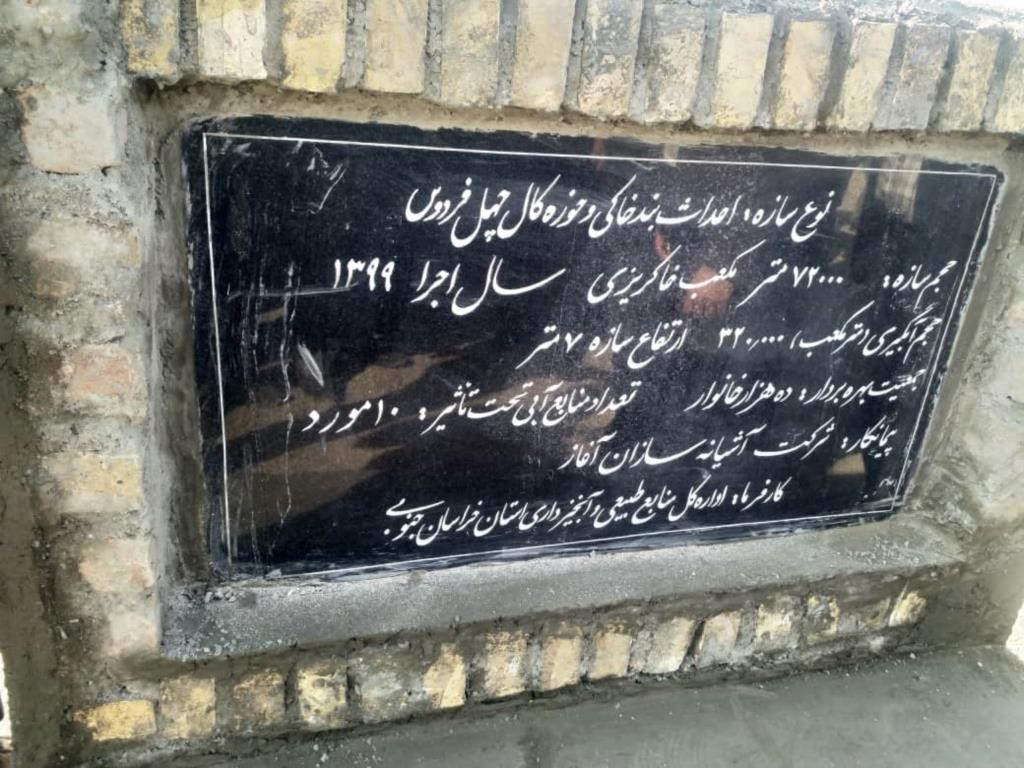 نوع سازه: احداث بند خاکی و حوزه کال چهل فردوس
حجم سازه: ۷۲۰۰۰ متر مکعب خاکریزی سال اجرا ۱۳۹۹
حجم آبگیری (متر مکعب) ۳۲۰,۰۰۰ ارتفاع سازه ۷ متر
جمعیت بهره بردار: ده هزار خانوار تعداد منابع آبی تحت تأثیر: ۱۰ مورد
پیمانکار: شرکت آشیانه سازان آغاز
کارفرما: اداره کل منابع طبیعی و آبخیزداری استان خراسان جنوبی